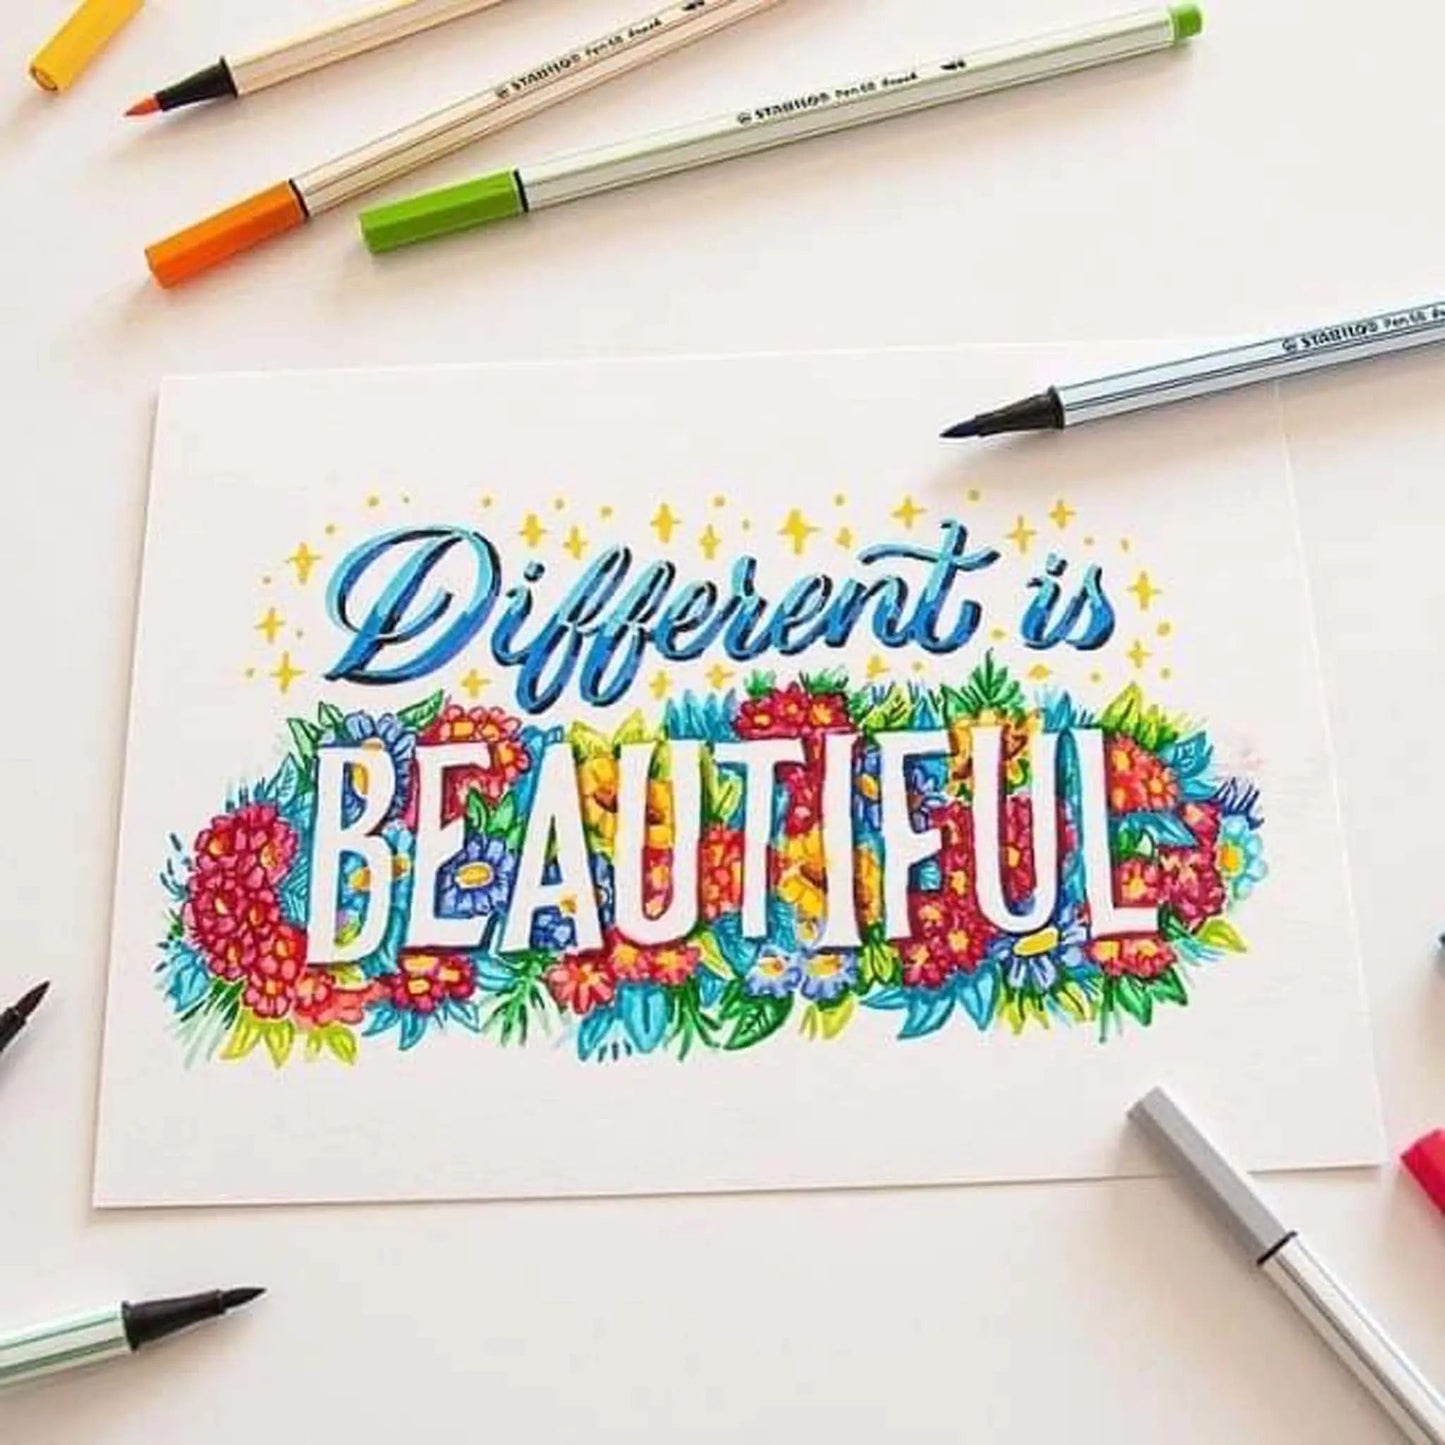 STABILO® Pen 68 brush
STABILO® Pen 68 brush
STABILO® Pen 68
Different is
BEAUTIFUL